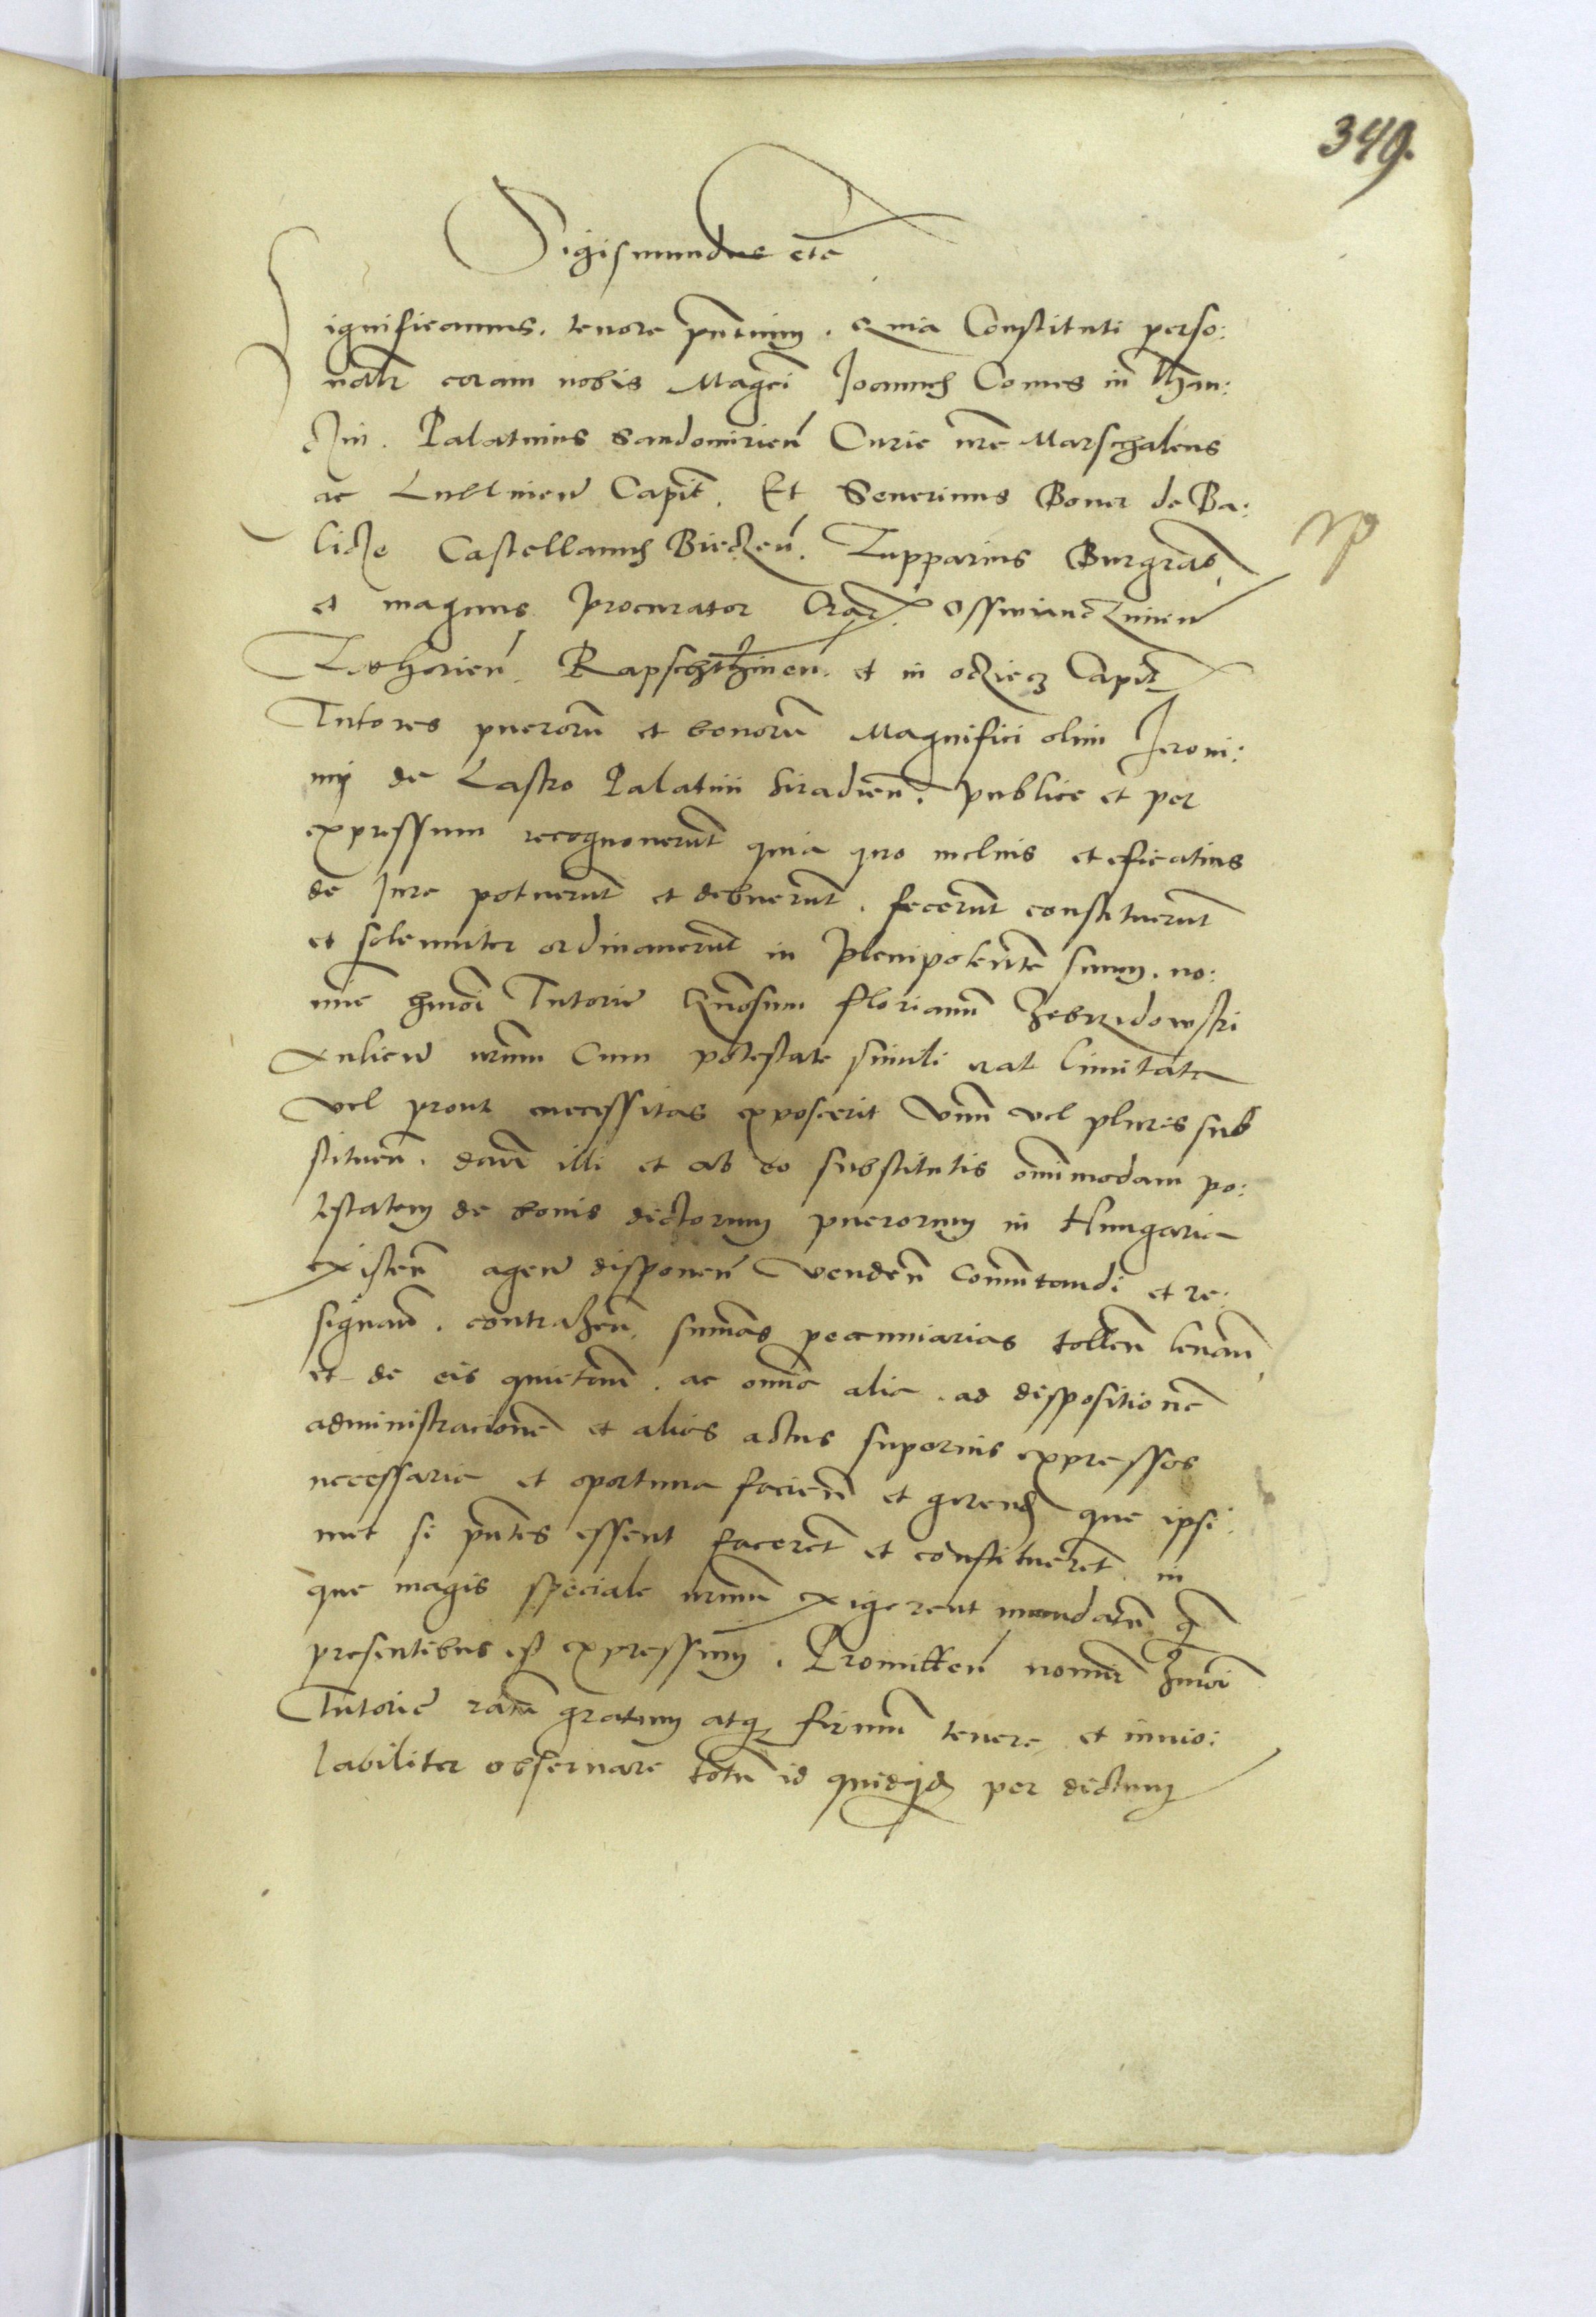 349.
Sigismundus etc
Significamus. tenore pntium. Quia Constituti perso:
nalr coram nobis Magci Joannes Comes in Than:
czin. Palatinus Sandomirien Curie nre Marschalcus
ac Lublinen Capit. Et Severinus Boner de Ba:
licze Castellanus Bieczen. Zupparius Burgrab,
et magnus procurator Crac. Osswianczimen
Zathorien. Rapschthinen. et in ocziecz Capit
Tutores puerorum et bonorum Magnifici olim Jeroni:
mi de Lasko Palatini Siradien. publice et per
expressum recognoverunt quia quo melius et eficatius
de Jure potuerunt et debuerunt. fecerunt constituerunt
et solemniter ordinaverunt in plenipotente suum. no:
mie hmoi Tutorie Gnosum florianum Zebrzidowski
Aulicum nrum Cum potestate simili limitata
vel prout necessitas exposcerit Unum vel plures sub
stituen. dan illi et ab eo substitutis omnimodam po:
testatem de bonis dictorum puerorum in Hungaria
existen agen disponen venden Commutandi et re:
signan. contrahen, summas pecuniarias tollen levan,
et de eis quietan. ac omnia alia. ad dispositione
administracione et alios actus superius expressos
necessaria et oportuna facien et gerend que ipsi:
met si pntes essent facerent et constituerent. in
que magis speciale nrum exigerent mandatum q
presentibus est expressum. Promitten nomine hmoi
Tutorie ratum gratum atq firmum tenere et invio:
labiliter observare totum id quidqd per dictum